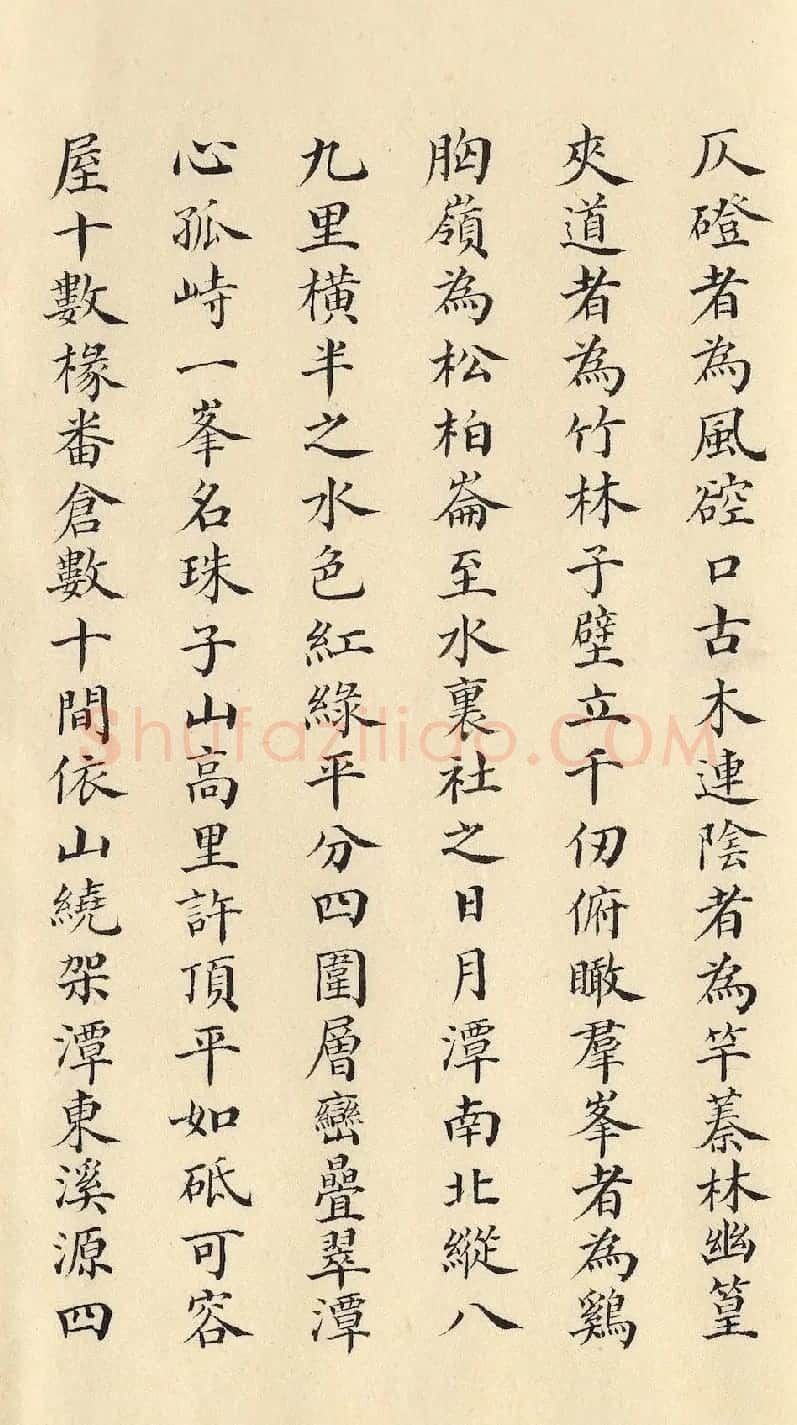 仄磴者為風硿口古木連陰者為竿蓁林幽篁
夾道者為竹林子壁立千仞俯瞰羣峯者為鷄
胸嶺為松柏崙至水裏社之日月潭南北縱八
九里橫半之水色紅綠平分四圍層巒疊翠潭
心孤峙一峯名珠子山高里許頂平如砥可容
屋十數椽番倉數十間依山繞架潭東溪源四
Shufaziliao.COM